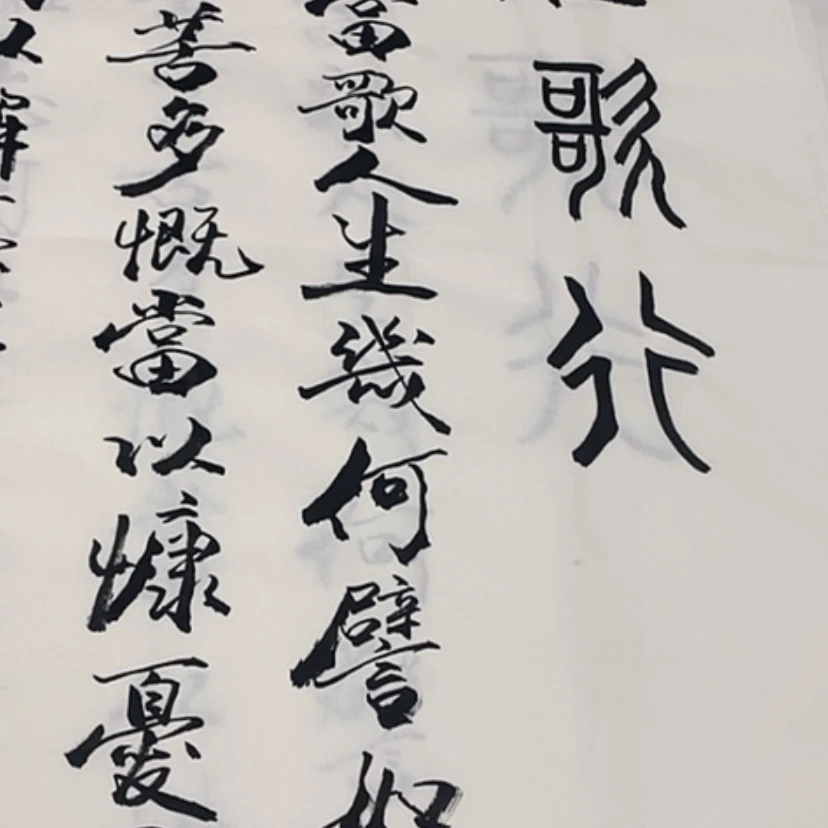 歌行
當歌人生幾何譬如
苦多慨當以慷憂